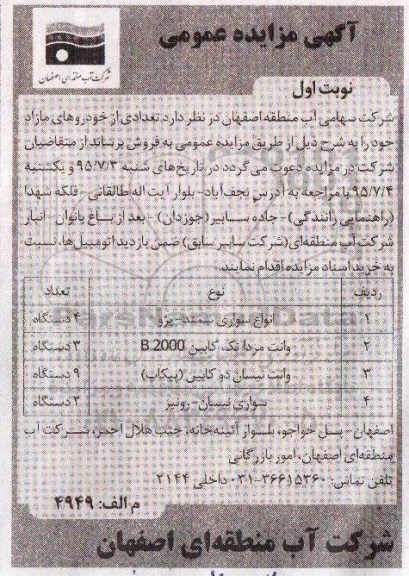 آگهی مزایده عمومی
شرکت آب منطقه ای اصفهان
نوبت اول
شرکت سهامی آب منطقه اصفهان در نظر دارد تعدادی از خودروهای مازاد
خود را به شرح ذیل از طریق مزایده عمومی به فروش برساند از متقاضیان
شرکت در مزایده دعوت می گردد در تاریخ های شنبه ۹۵/۷/۳ و یکشنبه
۹۵/۷/۴ با مراجعه به آدرس نجف آباد- بلوار آیت اله طالقانی- فلکه شهدا
(راهنمایی رانندگی)- جاده سایبر (جوزدان)- بعد از باغ بانوان- انبار
شرکت آب منطقه ای (شرکت سایبر سابق) ضمن بازدید اتومبیل ها، نسبت
به خرید اسناد مزایده اقدام نمایند.
ردیف نوع تعداد
۱ انواع سواری سمند- پژو ۴ دستگاه
۲ وانت مزدا تک کابین B.2000 ۳ دستگاه
۳ وانت نیسان دو کابین (پیکاپ) ۹ دستگاه
۴ سواری نیسان- رونیز ۲ دستگاه
اصفهان- پل خواجو، بلوار آئینه خانه، جنب هلال احمر، شرکت آب
منطقه ای اصفهان، امور بازرگانی
تلفن تماس: ۳۶۶۱۵۳۶۰-۰۳۱ داخلی ۲۱۴۴
م الف: ۴۹۴۹
شرکت آب منطقه ای اصفهان